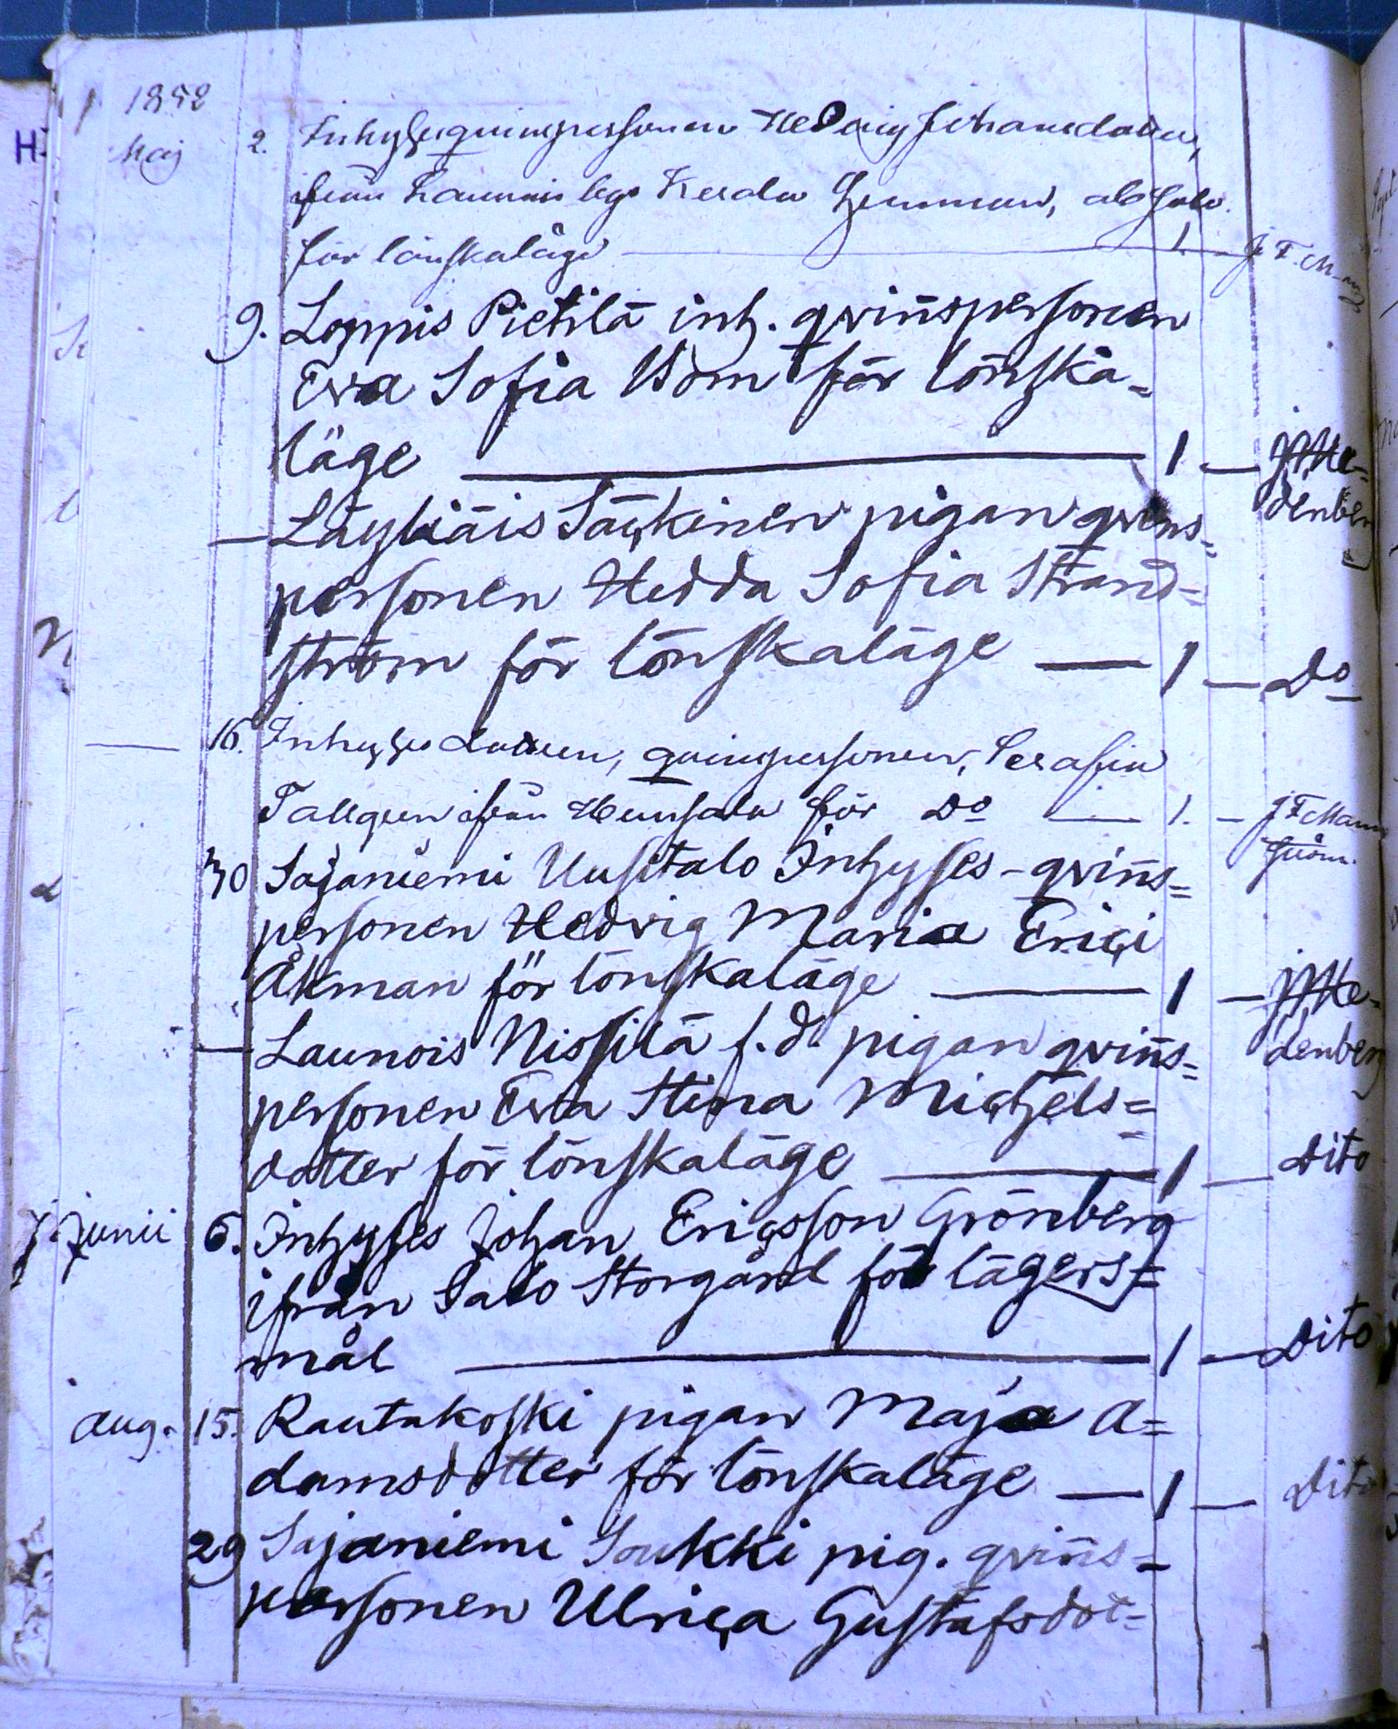 1852
Maj 2. Inhyses quinspersonen Hedvig Johansdotter,
från Launois by Kerala hemman, absolv.
för lönskaläge — 1 — J F Man
9. Loppis Pietilä inh. qvinspersonen
Eva Sofia Wom för lönska=
läge — 1 — Hedenberg
— Läyliäis Säckinen pigan qvins=
personen Hedda Sofia Strand=
ström för lönskaläge — 1 — Do
— 16. Inhyses Enkan, quinspersonen, Serafia
Tallgren ifrån Hunsala för Do — 1. — J F Mann
ström.
30 Sajaniemi Uusitalo Inhyses-qvins=
personen Hedvig Maria Erici
Åkman för lönskaläge — 1 — Hedenberg
— Launois Nissilä f.d. pigan qvins=
personen Eva Stina Michels=
dotter för lönskaläge — 1 — Dito
Junii 6. Inhyses Johan Ericsson Grönberg
ifrån Salo Storgård för lägers=
mål — 1 — Dito
Aug. 15. Rautakoski pigan Maja A=
damsdotter för lönskaläge — 1 — Dito
29 Sajaniemi Soukki pig. qvins=
personen Ulrica Gustafsdot=